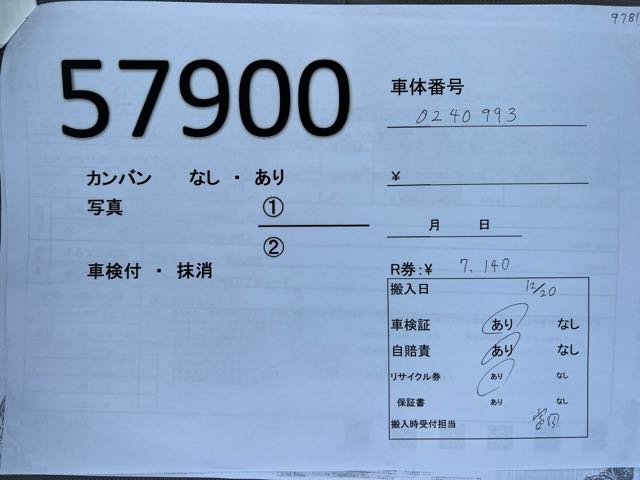 9781
57900
車体番号
0240993
カンバン なし ・ あり
¥
写真 ①
②
月 日
車検付 ・ 抹消
R券:¥ 7.140
搬入日 12/20
車検証 あり なし
自賠責 あり なし
リサイクル券 あり なし
保証書 あり なし
搬入時受付担当